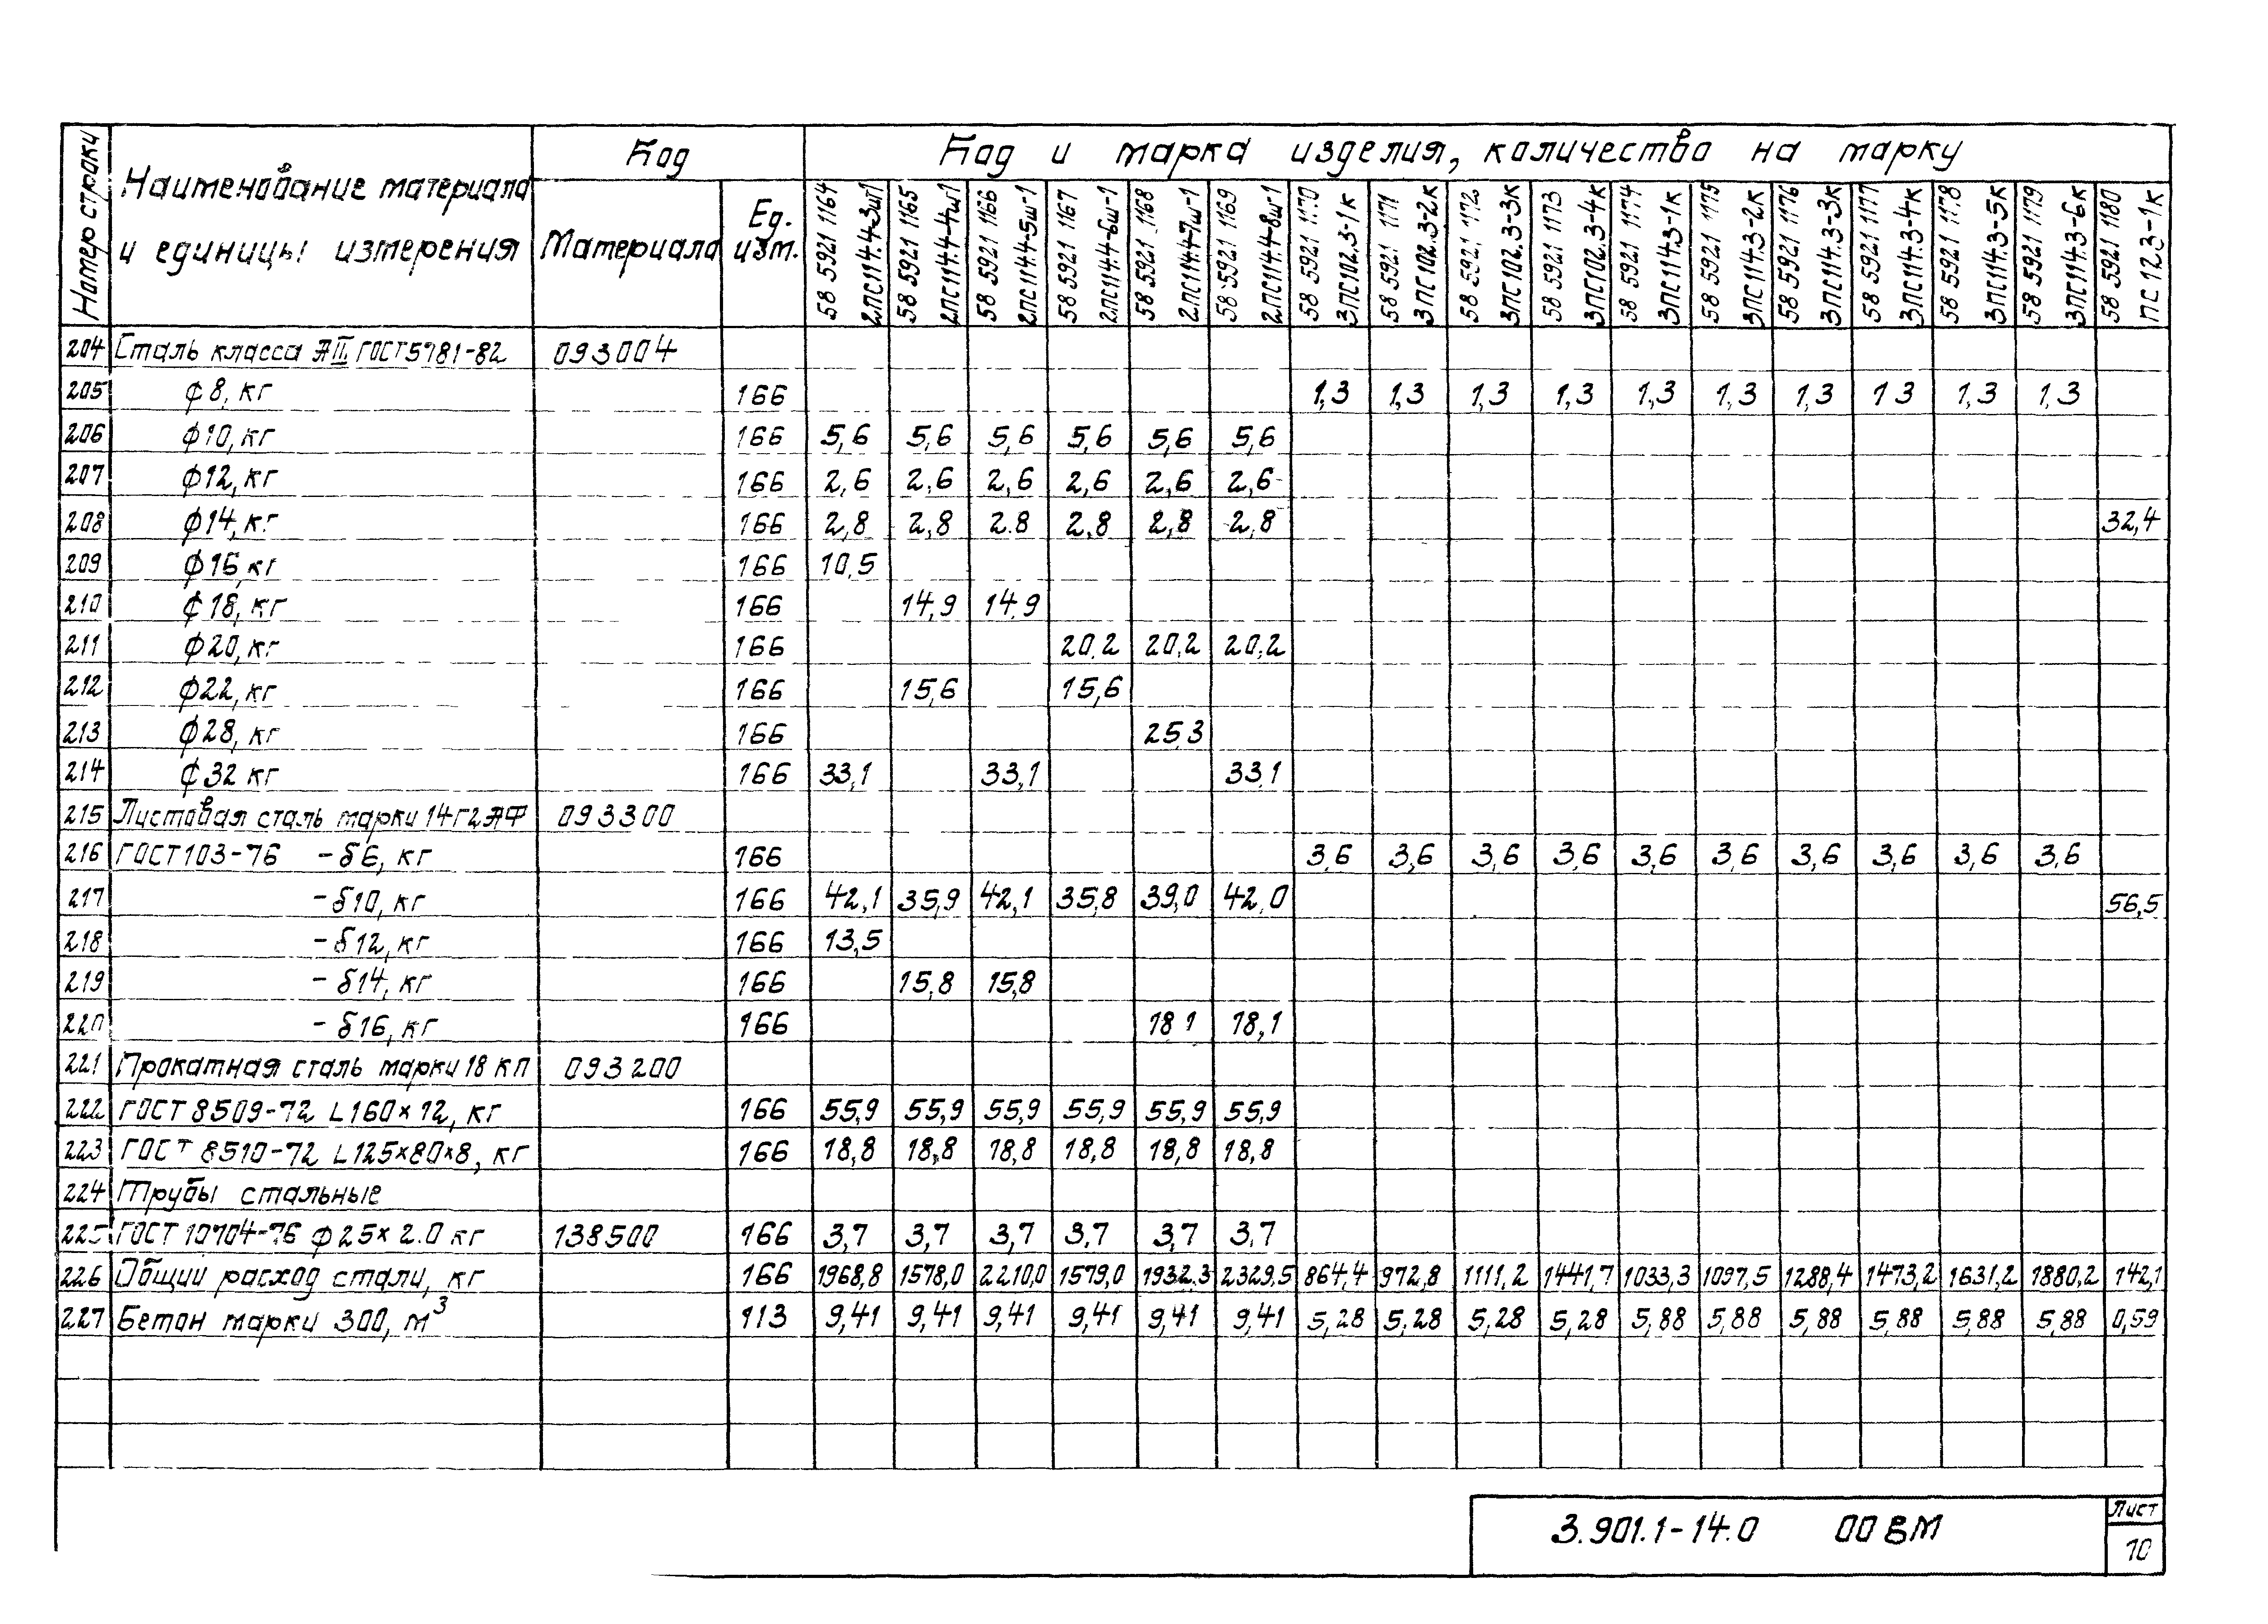 Номер строки
Наименование материала
и единицы измерения
Код
Материала
Ед.
изм.
Код и марка изделия, количество на марку
58 5921 1164
2ПС114.4-3ш-1
58 5921 1165
2ПС114.4-4ш-1
58 5921 1166
2ПС114.4-5ш-1
58 5921 1167
2ПС114.4-6ш-1
58 5921 1168
2ПС114.4-7ш-1
58 5921 1169
2ПС114.4-8ш-1
58 5921 1170
3ПС102.3-1к
58 5921 1171
3ПС102.3-2к
58 5921 1172
3ПС102.3-3к
58 5921 1173
3ПС102.3-4к
58 5921 1174
3ПС114.3-1к
58 5921 1175
3ПС114.3-2к
58 5921 1176
3ПС114.3-3к
58 5921 1177
3ПС114.3-4к
58 5921 1178
3ПС114.3-5к
58 5921 1179
3ПС114.3-6к
58 5921 1180
ПС 12.3-1к
204 Сталь класса АII ГОСТ5781-82 093004
205 ф8, кг 166 1,3 1,3 1,3 1,3 1,3 1,3 1,3 1 3 1,3 1,3
206 ф10, кг 166 5,6 5,6 5,6 5,6 5,6 5,6
207 ф12, кг 166 2,6 2,6 2,6 2,6 2,6 2,6
208 ф14, кг 166 2,8 2,8 2.8 2,8 2,8 2,8 32,4
209 ф16 кг 166 10,5
210 ф18, кг 166 14,9 14.9
211 ф20, кг 166 20,2 20,2 20,2
212 ф22, кг 166 15,6 15,6
213 ф28, кг 166 25,3
214 ф32 кг 166 33,1 33,1 33,1
215 Листовая сталь марки 14Г2АФ 093300
216 ГОСТ103-76 -δ6, кг 166 3,6 3,6 3,6 3,6 3,6 3,6 3,6 3,6 3,6 3,6
217 -δ10, кг 166 42,1 35,9 42,1 35,8 39,0 42,0 56,5
218 -δ12, кг 166 13,5
219 -δ14, кг 166 15,8 15,8
220 -δ16, кг 166 18 1 18,1
221 Прокатная сталь марки 18 КП 093200
222 ГОСТ 8509-72 L160×12, кг 166 55,9 55,9 55,9 55,9 55,9 55,9
223 ГОСТ 8510-72 L125×80×8, кг 166 18,8 18,8 18,8 18,8 18,8 18,8
224 Трубы стальные
225 ГОСТ 10704-76 ф25×2.0 кг 138500 166 3,7 3,7 3,7 3,7 3,7 3,7
226 Общий расход стали, кг 166 1968,8 1578,0 2210,0 1579,0 1932.3 2329.5 864,4 972,8 1111,2 1441,7 1033,3 1097,5 1288,4 1473,2 1631,2 1880,2 142,1
227 Бетон марки 300, м³ 113 9,41 9,41 9,41 9,41 9,41 9,41 5,28 5,28 5,28 5,28 5,88 5,88 5,88 5,88 5,88 5,88 0,59
3.901.1-14.0 00 ВМ
Лист
10